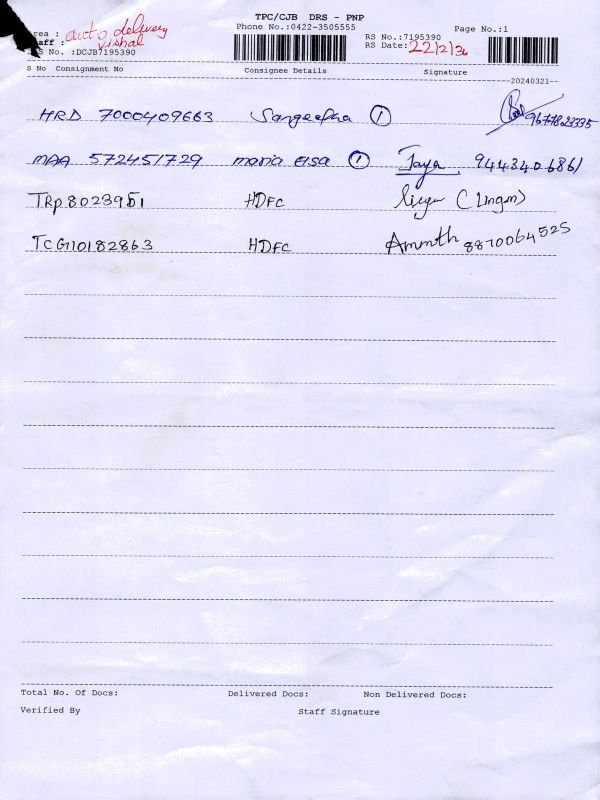 TPC/CJB DRS - PNP
Area : auto delivery
Phone No.:0422-3505555
Page No.:1
Staff : vishal
RS No.:7195390
RS No. :DCJB7195390
RS Date: 22/2/26
S No Consignment No Consignee Details Signature
--20240321--
HRD 7000409663 Sangeetha 1 9677823335
MAA 572451729 maria Elsa 1 Jaya 9443406861
TRP8023951 HDFC (Lingm)
TCG110182863 HDFC Ammth 8870064525
Total No. Of Docs: Delivered Docs: Non Delivered Docs:
Verified By Staff Signature